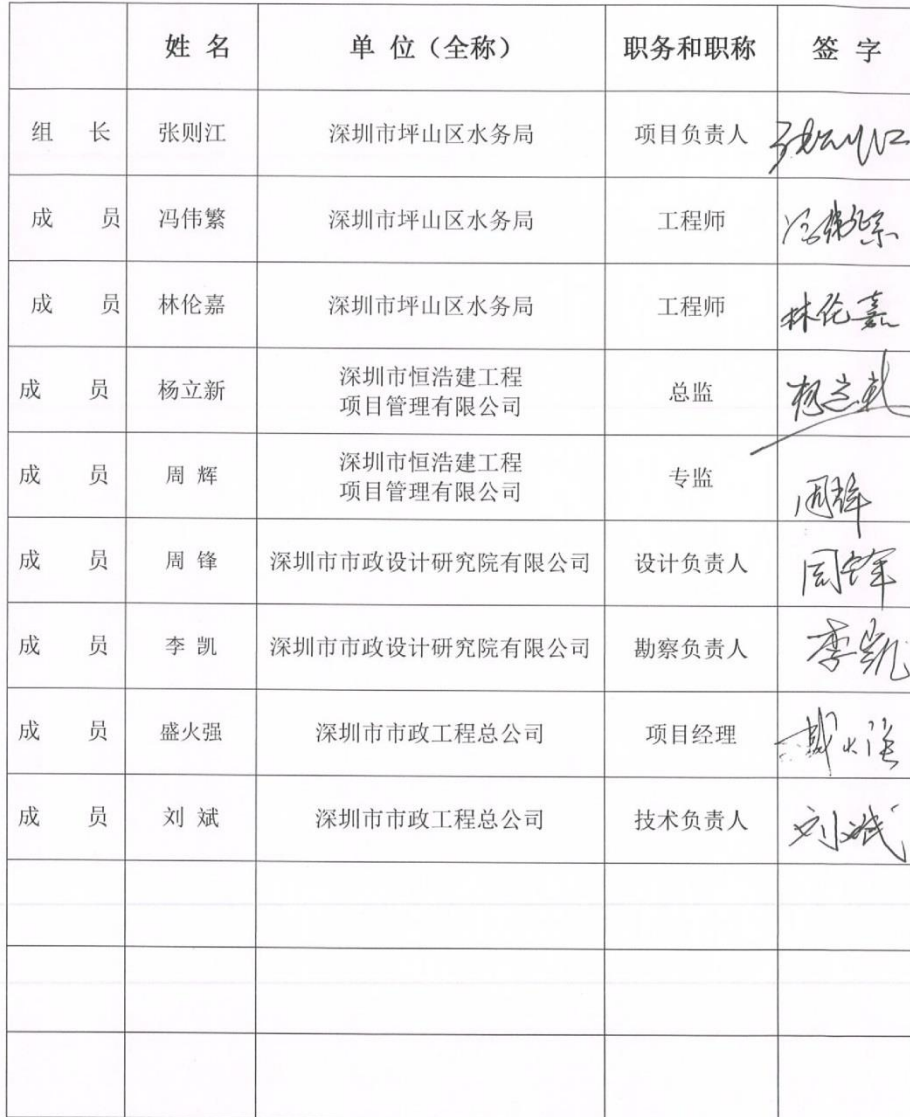 姓 名 单 位（全称） 职务和职称 签 字
组 长 张则江 深圳市坪山区水务局 项目负责人 张则江
成 员 冯伟繁 深圳市坪山区水务局 工程师 冯伟繁
成 员 林伦嘉 深圳市坪山区水务局 工程师 林伦嘉
成 员 杨立新 深圳市恒浩建工程 总监 杨立新
项目管理有限公司
成 员 周 辉 深圳市恒浩建工程 专监 周辉
项目管理有限公司
成 员 周 锋 深圳市市政设计研究院有限公司 设计负责人 周锋
成 员 李 凯 深圳市市政设计研究院有限公司 勘察负责人 李凯
成 员 盛火强 深圳市市政工程总公司 项目经理 盛火强
成 员 刘 斌 深圳市市政工程总公司 技术负责人 刘斌